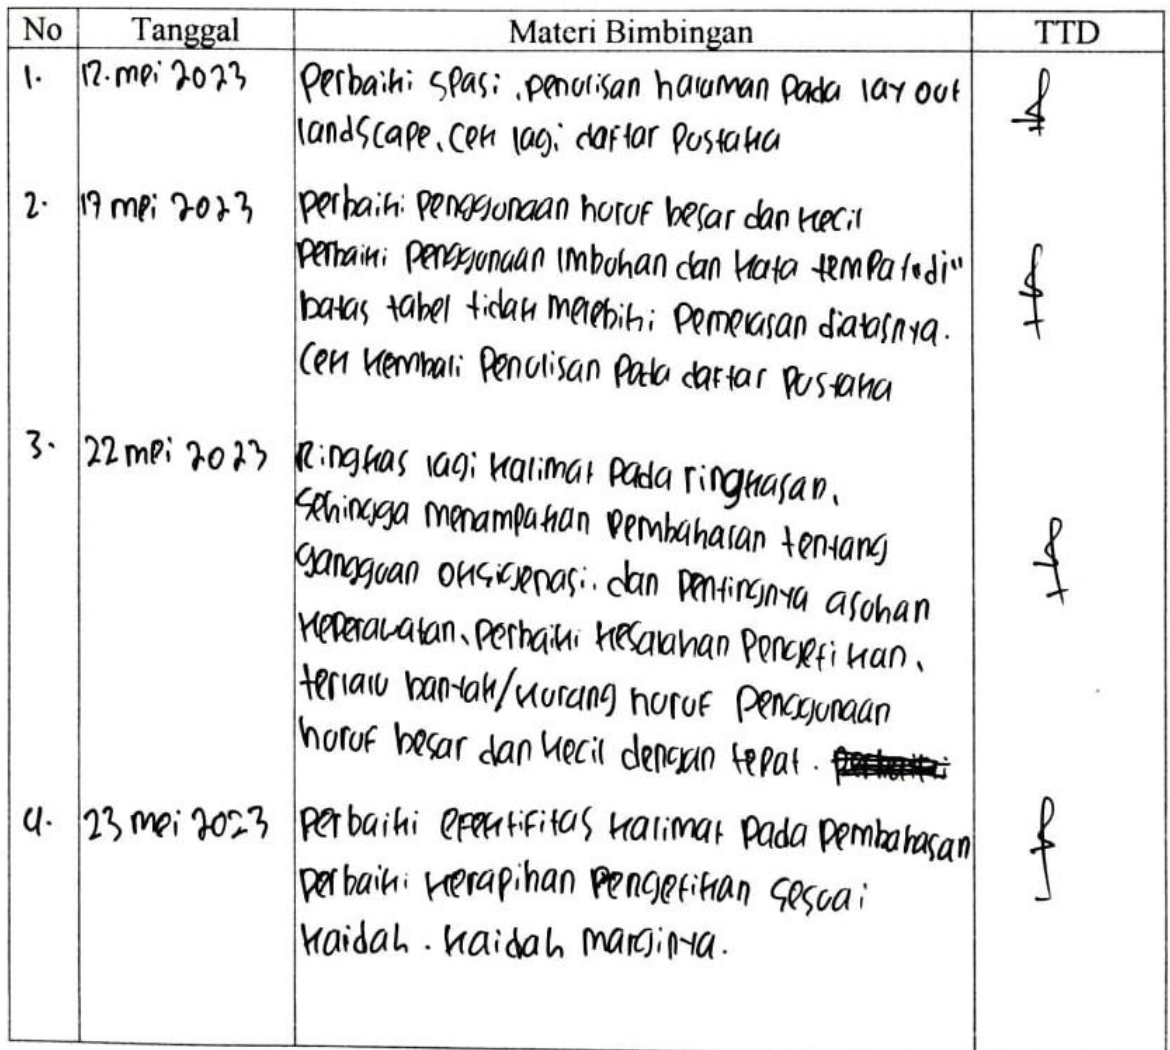 No Tanggal Materi Bimbingan TTD
1. 12. mei 2023 Perbaiki spasi, penulisan halaman pada lay out
landscape, cek lagi daftar pustaka
2. 17 mei 2023 perbaiki penggunaan huruf besar dan kecil
perbaiki penggunaan imbuhan dan kata tempat "di"
batas tabel tidak melebihi pemelasan diatasnya.
Cek kembali penulisan pada daftar pustaka
3. 22 mei 2023 Ringkas lagi kalimat pada ringkasan,
sehingga menampakan pembahasan tentang
gangguan oksigenasi. dan pentingnya asuhan
keperawatan, perbaiki kesalahan pengetikan,
terlalu banyak/kurang huruf penggunaan
huruf besar dan kecil dengan tepat.
4. 23 mei 2023 perbaiki efektifitas kalimat pada pembahasan
perbaiki kerapihan pengetikan sesuai
kaidah. kaidah marginya.